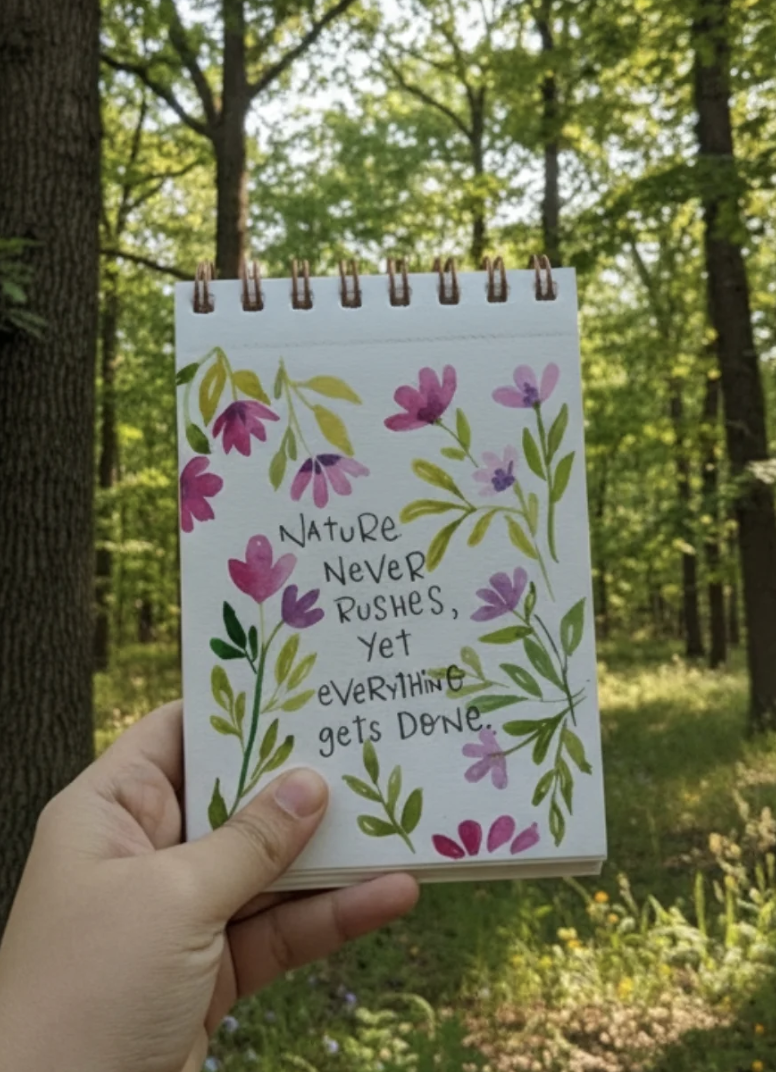 NAtuRe
NeVeR
RuSHeS,
Yet
eVeRYtHiNG
gets DONe.